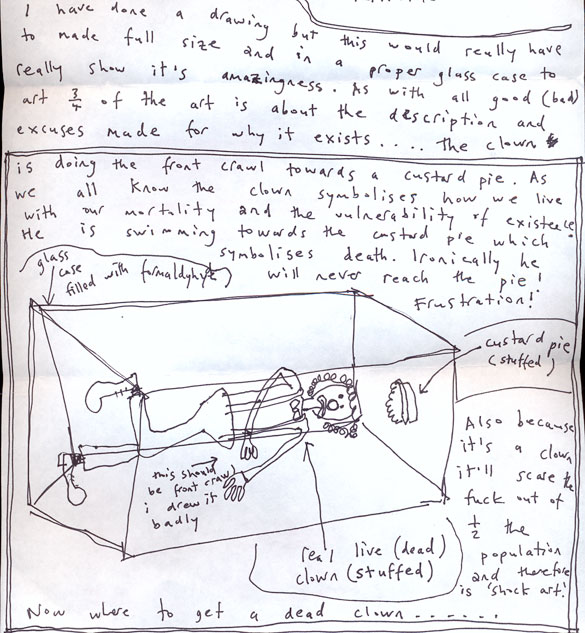 I have done a drawing but this would really have
to made full size and in a proper glass case to
really show it's amazingness. As with all good (bad)
art 3/4 of the art is about the description and
excuses made for why it exists.... the clown
is doing the front crawl towards a custard pie. As
we all know the clown symbolises how we live
with our mortality and the vulnerability of existence.
He is swimming towards the custard pie which
symbolises death. Ironically he
will never reach the pie!
Frustration!
glass
case
filled with formaldyhyte
custard pie
(stuffed)
this should
be front crawl
i drew it
badly
real live (dead)
clown (stuffed)
Also because
it's a clown
it'll scare the
fuck out of
1/2 the
population
and therefore
is 'shock art'!
Now where to get a dead clown......